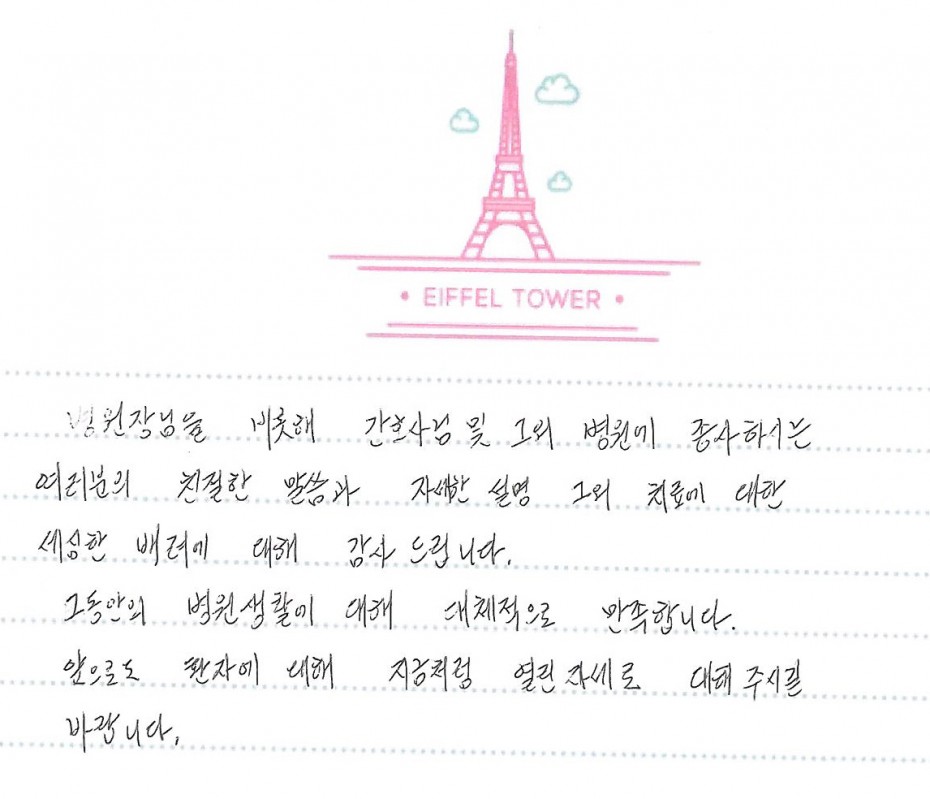 • EIFFEL TOWER •
병원장님을 비롯해 간호사님 및 그외 병원에 종사하시는
여러분의 친절한 말씀과 자세한 설명 그외 치료에 대한
세심한 배려에 대해 감사 드립니다.
그동안의 병원생활에 대해 대체적으로 만족합니다.
앞으로도 환자에 대해 지금처럼 열린 자세로 대해 주시길
바랍니다.